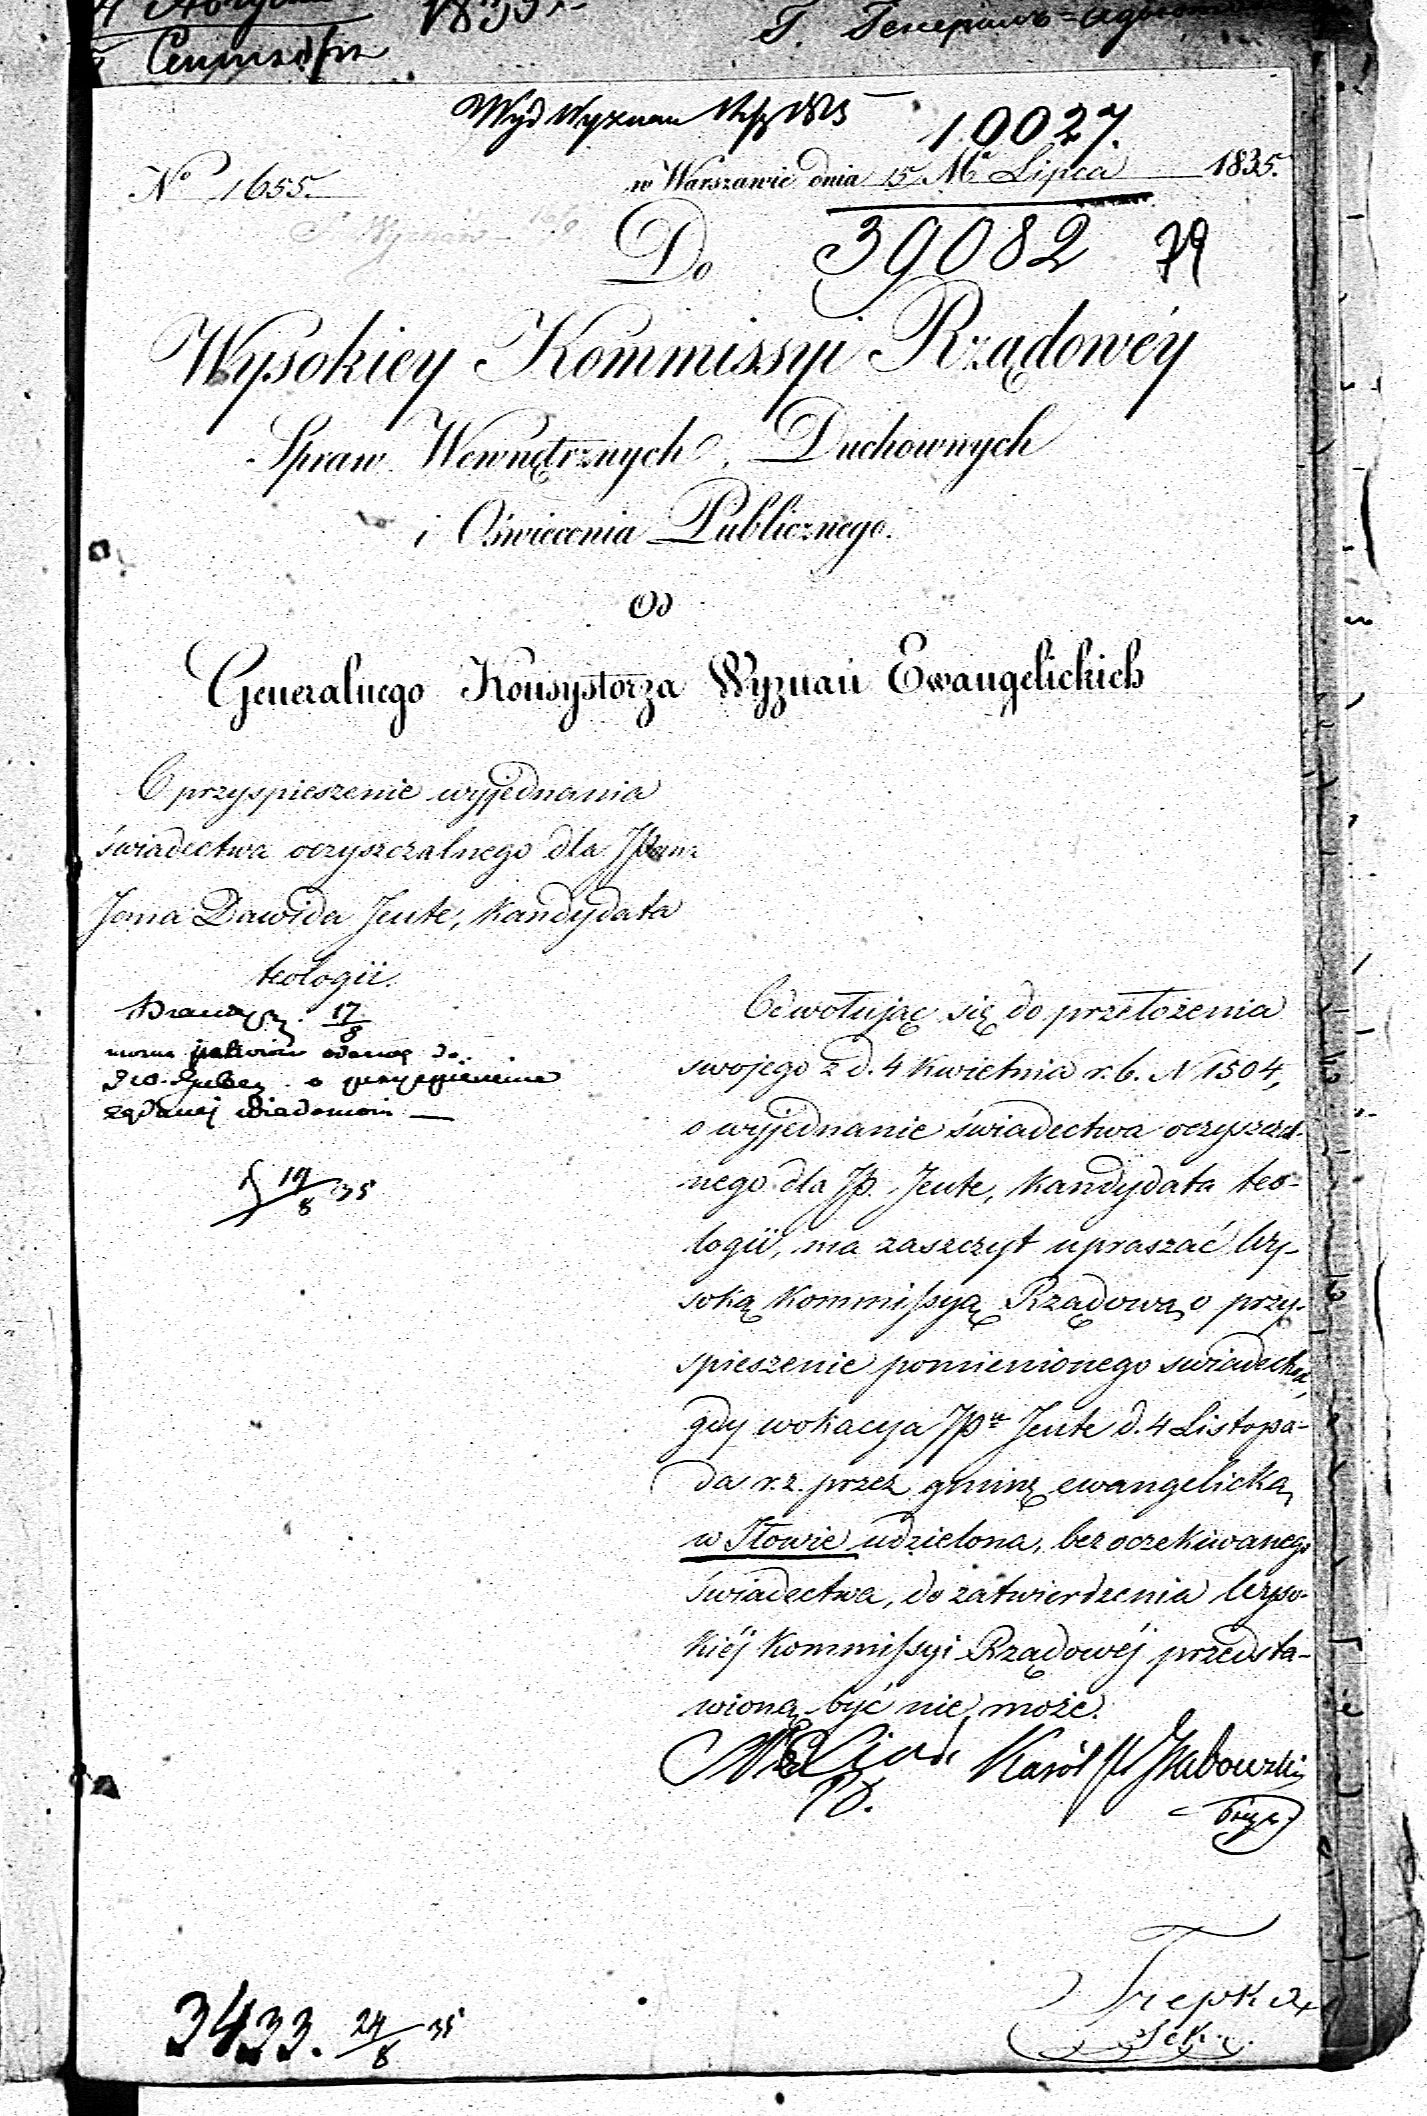 1835.
10027.
No 1655. w Warszawie dnia 15 Mca Lipca 1835.
Do 39082 79
Wysokiey Kommissyi Rządowéy
Spraw Wewnętrznych, Duchownych
i Oświecenia Publicznego.
Od
Generalnego Konsystorza Wyznań Ewangelickich
O przyspieszenie wyjednania
świadectwa oczyszczalnego dla JPana
Jana Dawida Jeute, Kandydata
teologii.
17/8
o przyspieszenie
żądanej wiadomości —
19/8 35
Odwołując się do przełożenia
swojego z d. 4 Kwietnia r. b. N 1504,
o wyjednanie świadectwa oczyszczal-
nego dla Jp. Jeute, Kandydata teo-
logii, ma zaszczyt upraszać Wy-
soką Kommissyą Rządową o przy-
spieszenie pomienionego swiadectwa,
gdy wokacya Jpa Jeute d. 4 Listopa-
da r. z. przez gminę ewangelicką
w Iłowie udzielona, bez oczekiwanego
świadectwa, do zatwierdzenia Wyso-
kiéj Kommissyi Rządowéj przedsta-
wioną być nie może.
Karól
Trepka
Sek.
3433. 24/8 35